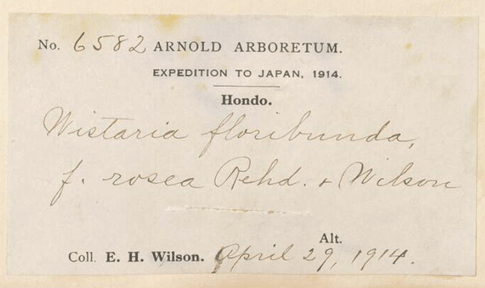 No. 6582 ARNOLD ARBORETUM.
EXPEDITION TO JAPAN, 1914.
Hondo.
Wistaria floribunda,
f. rosea Rehd. & Wilson
Alt.
Coll. E. H. Wilson. April 29, 1914.